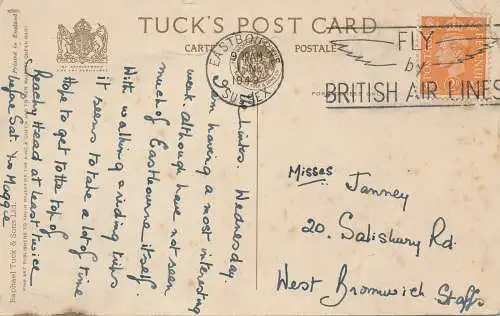 TUCK'S POST CARD
CARTE POSTALE
EASTBOURNE
SUSSEX
FLY
by
BRITISH AIR LINES
The Links. Wednesday.
Am having a most interesting
week although have not seen
much of Eastbourne itself.
With walking & riding trips
it seems to take a lot of time
Hope to get to the top of
Beachy Head at least twice
before Sat. Yrs Maggie
Misses Janney
20. Salisbury Rd.
West Bromwich
Staffs
Raphael Tuck & Sons Ltd.